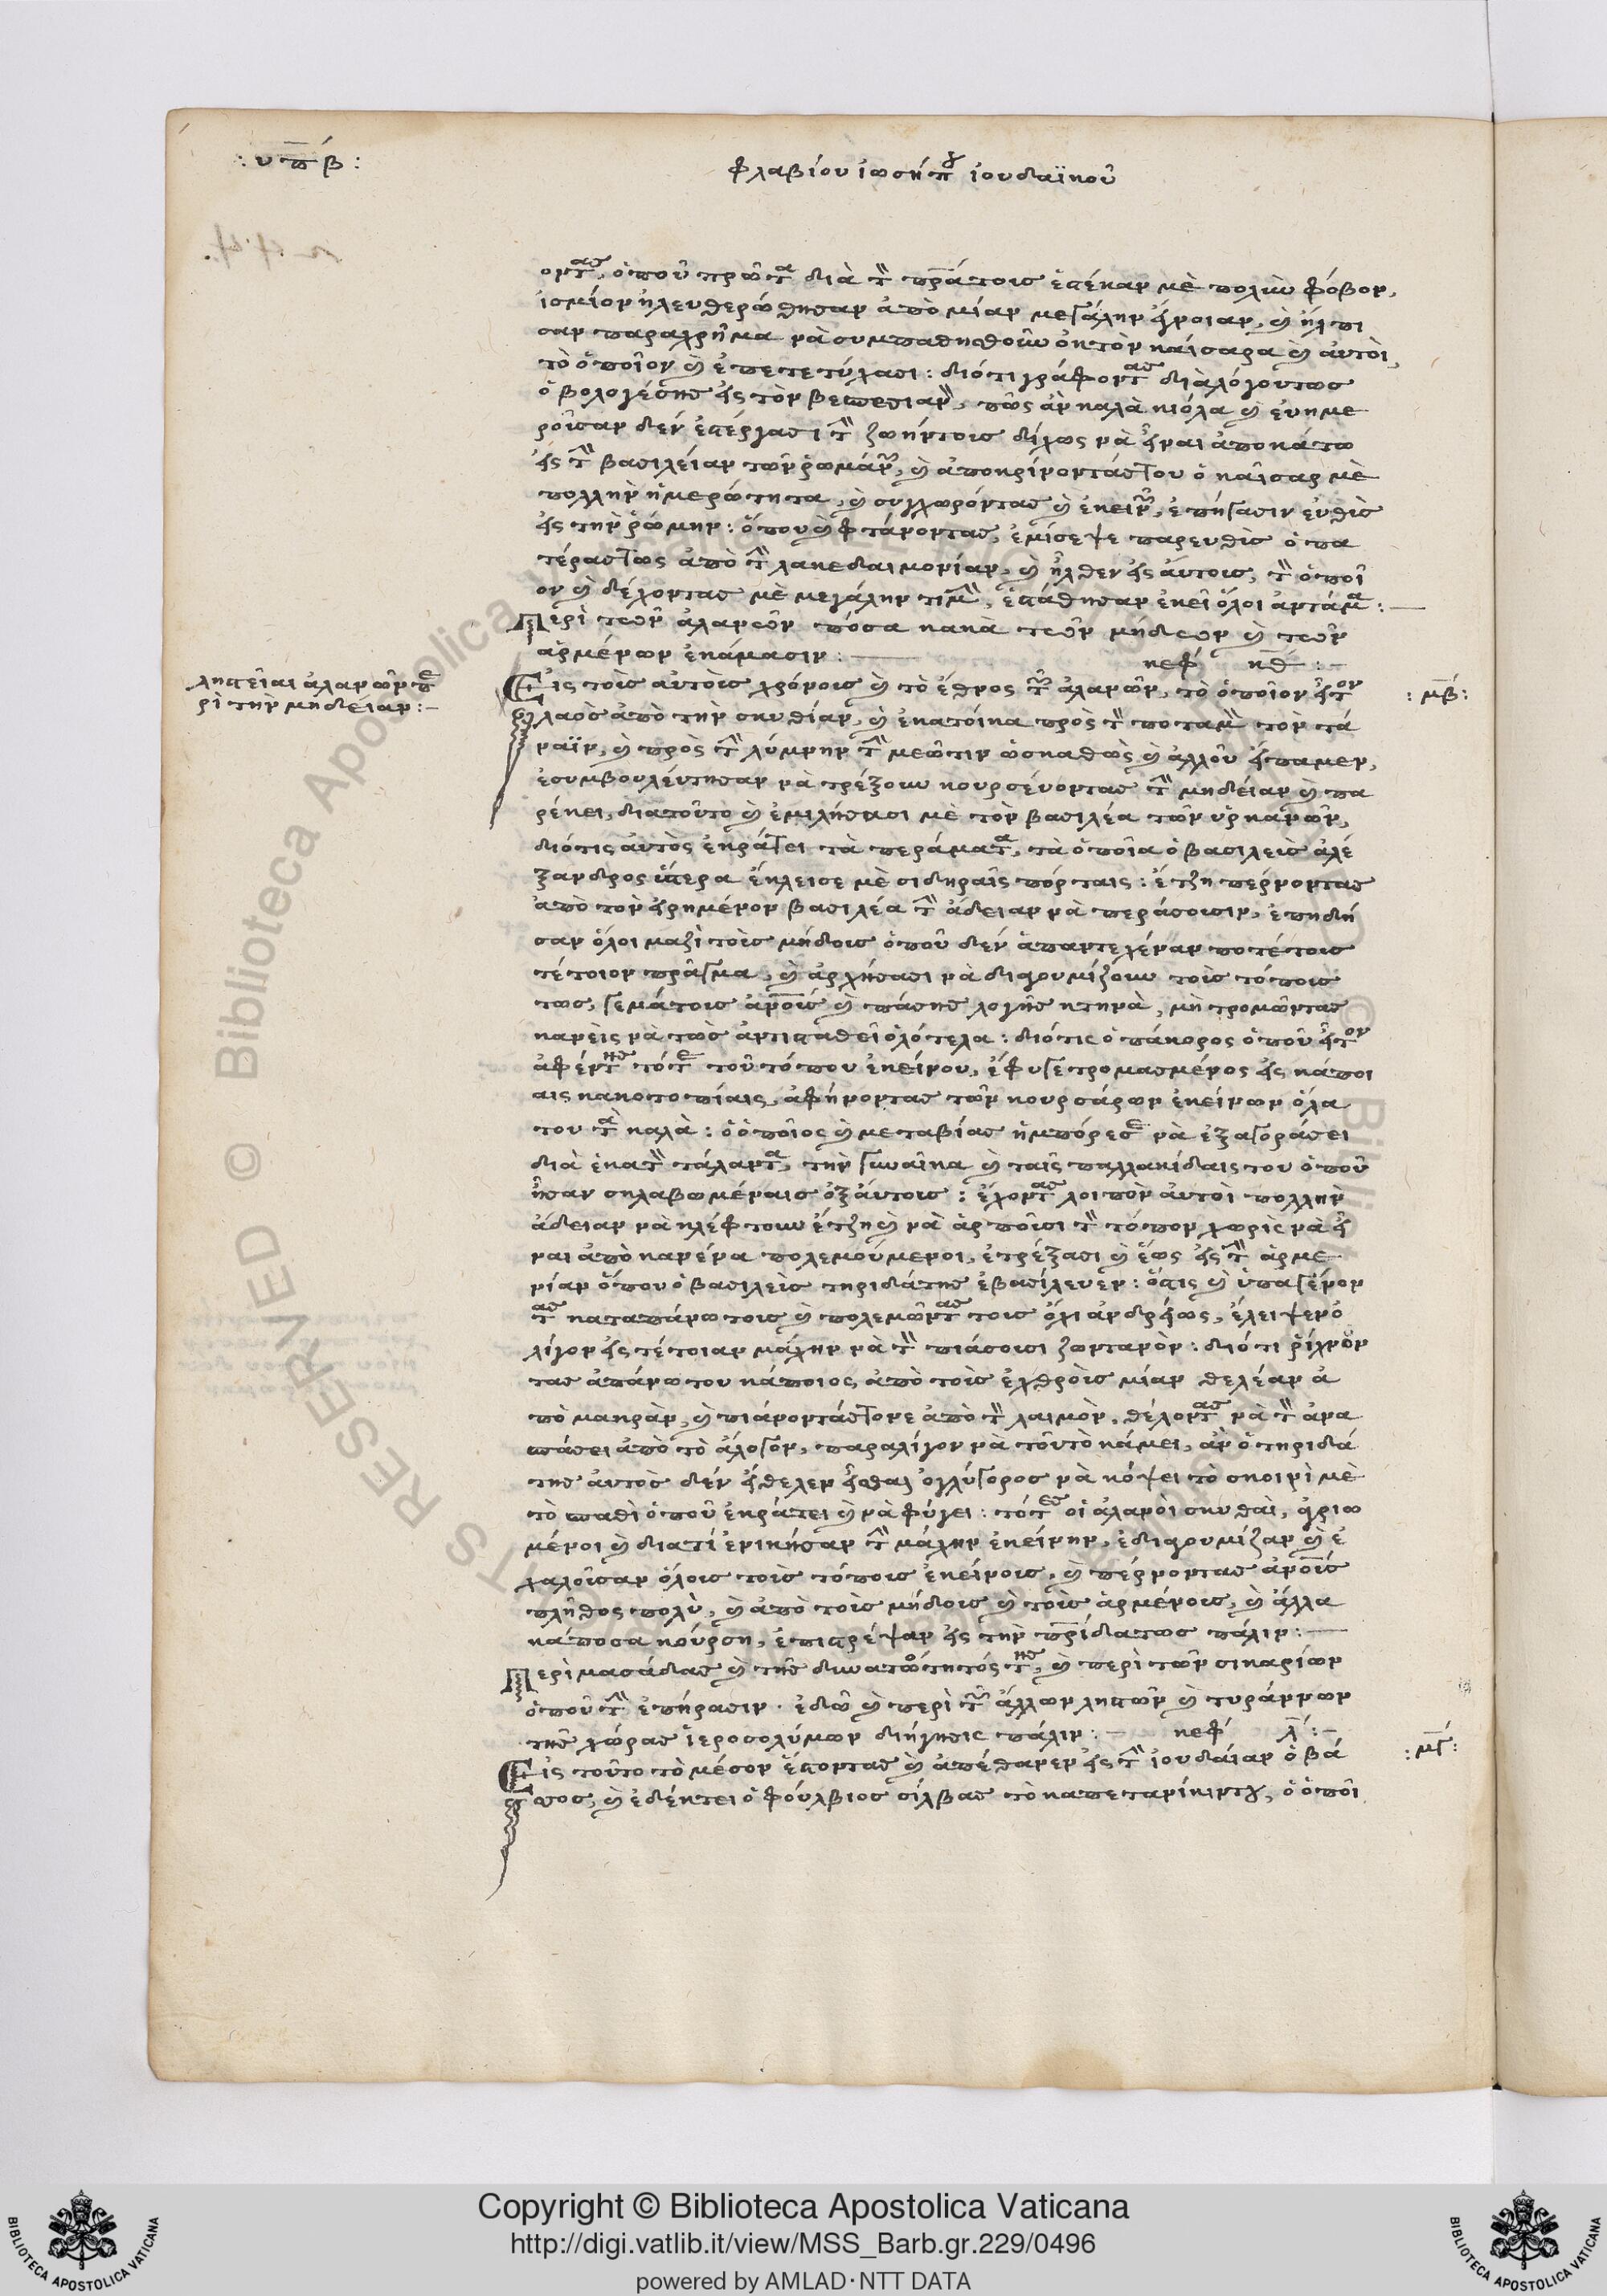 : υπβ :
φλαβίου ἰωσήπου ἰουδαϊκοῦ
οντας, ὁποῦ πρῶτα διὰ τὸν πρᾶτοις ἐστέκαν μὲ πολὺν φόβον,
ἰσμίον ἠλευθερώθησαν ἀπὸ μίαν μεγάλην ἔγνοιαν, καὶ ἤλπι
σαν παραχρῆμα νὰ συμπαθησθοῦν ὀκτὸν καίσαρα καὶ αὐτοὶ,
τὸ ὁποῖον καὶ ἐπετετύχασι : διότι γράφοντας διαλόγουτως
ὁ βολογέσης εἰς τὸν βεσπεσιανὸν, πῶς ἂν καλὰ κιόλα καὶ εὐημε
ροῦσαν δὲν ἐστέργασι τὴν ζωήντοις δίχως νὰ εἶναι ἀποκάτω
εἰς τὴν βασιλείαν τῶν ῥωμάνων, καὶ ἀποκρίνοντάστου ὁ καῖσαρ μὲ
πολλὴν ἡμερώτητα, καὶ συγχωρόντας καὶ ἐκεινῶν, ἐπήγασιν εὐθὶς
εἰς τὴν ῥώμην : ὅπου καὶ φτάνοντας, ἐμίσεψε παρευθὶς ὁ πα
τέραστως ἀπὸ τὴν λακεδαιμονίαν, καὶ ἦλθεν εἰς αὐτοις, τὸν ὁποῖ
ον καὶ δέχοντας μὲ μεγάλην τιμὴν, ἐστάθησαν ἐκεῖ ὅλοι ἀντάμα :
Περὶ τῶν ἀλανῶν πόσα κακὰ τῶν μήδεων καὶ τῶν
ἀρμένων ἐκάμασιν : κεφ κθ :
Εἰς τοὶς αὐτοὶς χρόνοις καὶ τὸ ἔθνος τῶν ἀλανῶν, τὸ ὁποῖον ἦτον
λαὸς ἀπὸ τὴν σκυθίαν, καὶ ἐκατοίκα πρὸς τὸν ποταμὸν τὸν τά
ναϊν, καὶ πρὸς τὴν λύμνην τὴν μεῶτιν ὡσκαθὼς καὶ ἀλλοῦ εἴπαμεν,
ἐσυμβουλεύτησαν νὰ τρέξουν κουρσεύοντας τὴν μηδείαν καὶ πα
ρέκει, διατοῦτο καὶ ἐμιλήσασι μὲ τὸν βασιλέα τῶν ὑρκανῶν,
διότις αὐτὸς ἐκράτει τὰ περάματα, τὰ ὁποῖα ὁ βασιλεὶς ἀλέ
ξανδρος ὕστερα ἔκλεισε μὲ σιδηραῖς πόρταις : ἔτζη πέρνοντας
ἀπὸ τὸν εἰρημένον βασιλέα τὴν ἄδειαν νὰ περάσουσιν, ἐπηδή
σαν ὅλοι μαζὶ τοὶς μήδοις ὁποῦ δὲν ἀπαντεχέναν ποτέτοις
τέτοιον πρᾶγμα, καὶ ἀρχήσασι νὰ διαγουμίζουν τοὶς τόποις
τως, γεμάτοις ἀνθρώποις καὶ πάσης λογῆς κτηνὰ, μὴ τρομῶντας
κανεὶς νὰ τῶς ἀντισταθεῖ ὁλότελα : διότις ὁ πάκορος ὁποῦ ἦτον
ἀφέντης τότε τοῦ τόπου ἐκείνου, ἔφυγε τρομασμένος εἰς κάποι
αις κακοτοπίαις, ἀφήνοντας τῶν κουρσάρων ἐκείνων ὅλα
του τὰ καλὰ : ὁ ὁποῖος καὶ μεταβίας ἠμπόρεσε νὰ ἐξαγοράσει
διὰ ἑκατὸν τάλαντα, τὴν γυναῖκα καὶ ταῖς παλλακίδαις του ὁποῦ
ἦσαν σκλαβωμέναις ὀξ αὐτοις : ἔχοντας λοιπὸν αὐτοὶ πολλὴν
ἄδειαν νὰ κλέφτουν ἔτζη καὶ νὰ ἁρποῦσι τὸν τόπον χωρὶς νὰ εἶ
ναι ἀπὸ κανένα πολεμούμενοι, ἐτρέξασι καὶ ἕως εἰς τὴν ἀρμε
νίαν ὅπου ὁ βασιλεὶς τηριδάτης ἐβασίλευεν : ὅστις καὶ ὑπαγένον
τας καταπάνωτοις καὶ πολεμῶντας τοις ὄχι ἀνδρείως, ἔλειψεν ὀ
λίγον εἰς τέτοιαν μάχην νὰ τὸν πιάσουσι ζωντανὸν : διότι ῥίχνον
τας ἀπάνω του κάποιος ἀπὸ τοὶς ἐχθροὶς μίαν θελέαν ἀ
πὸ μακρὰν, καὶ πιάνοντάστονε ἀπὸ τὸν λαιμὸν, θέλοντας νὰ τὸν ἀνα
σπάσει ἀπὸ τὸ ἄλογον, παραλίγον νὰ τοῦτὸ κάμει, ἂν ὁ τηριδά
της αὐτὸς δὲν ἤθελεν εἶσθαι ὀγλύγορος νὰ κόψει τὸ σκοινὶ μὲ
τὸ σπαθὶ ὁποῦ ἐκράτει καὶ νὰ φύγει : τότες οἱ ἀλανοὶ σκυθαὶ, ἀγριω
μένοι καὶ διατί ἐνικήσαν τὴν μάχην ἐκείνην, ἐδιαγουμίζαν καὶ ἐ
χαλοῦσαν ὅλοις τοὶς τόποις ἐκείνοις, καὶ πέρνοντας ἀνθρώποις
πλῆθος πολὺ, καὶ ἀπὸ τοὶς μήδοις καὶ τοὶς ἀρμένοις, καὶ ἄλλα
κάποσα κούρση, ἐπιστρέψαν εἰς τὴν πατρίδατως πάλιν :
Περὶ μασάδας καὶ τῆς δυνατώτητός της, καὶ περὶ τῶν σικαρίων
ὁποῦ τὴν ἐπήρασιν. ἐδῶ καὶ περὶ τῶν ἄλλων ληστῶν καὶ τυράννων
τῆς χώρας ἱεροσολύμων διήγησις πάλιν : κεφ λ :
Εἰς τοῦτο τὸ μέσον ἔστοντας καὶ ἀπέθανεν εἰς τὴν ἰουδαίαν ὁ βά
σσος, καὶ ἐδέκτει ὁ φούλβιος σίλβας τὸ καπετανίκιντου, ὁ ὁποῖ
ληστεῖαι ἀλανῶν πε
ρὶ τὴν μηδείαν :
: μβ :
: μγ :
Copyright © Biblioteca Apostolica Vaticana
http://digi.vatlib.it/view/MSS_Barb.gr.229/0496
powered by AMLAD·NTT DATA